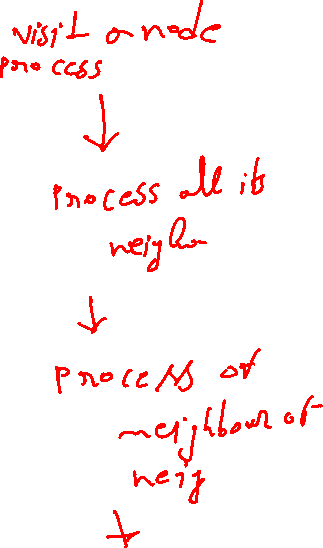 visit a node
process
process all its
neigh
process of
neighbour of
neig